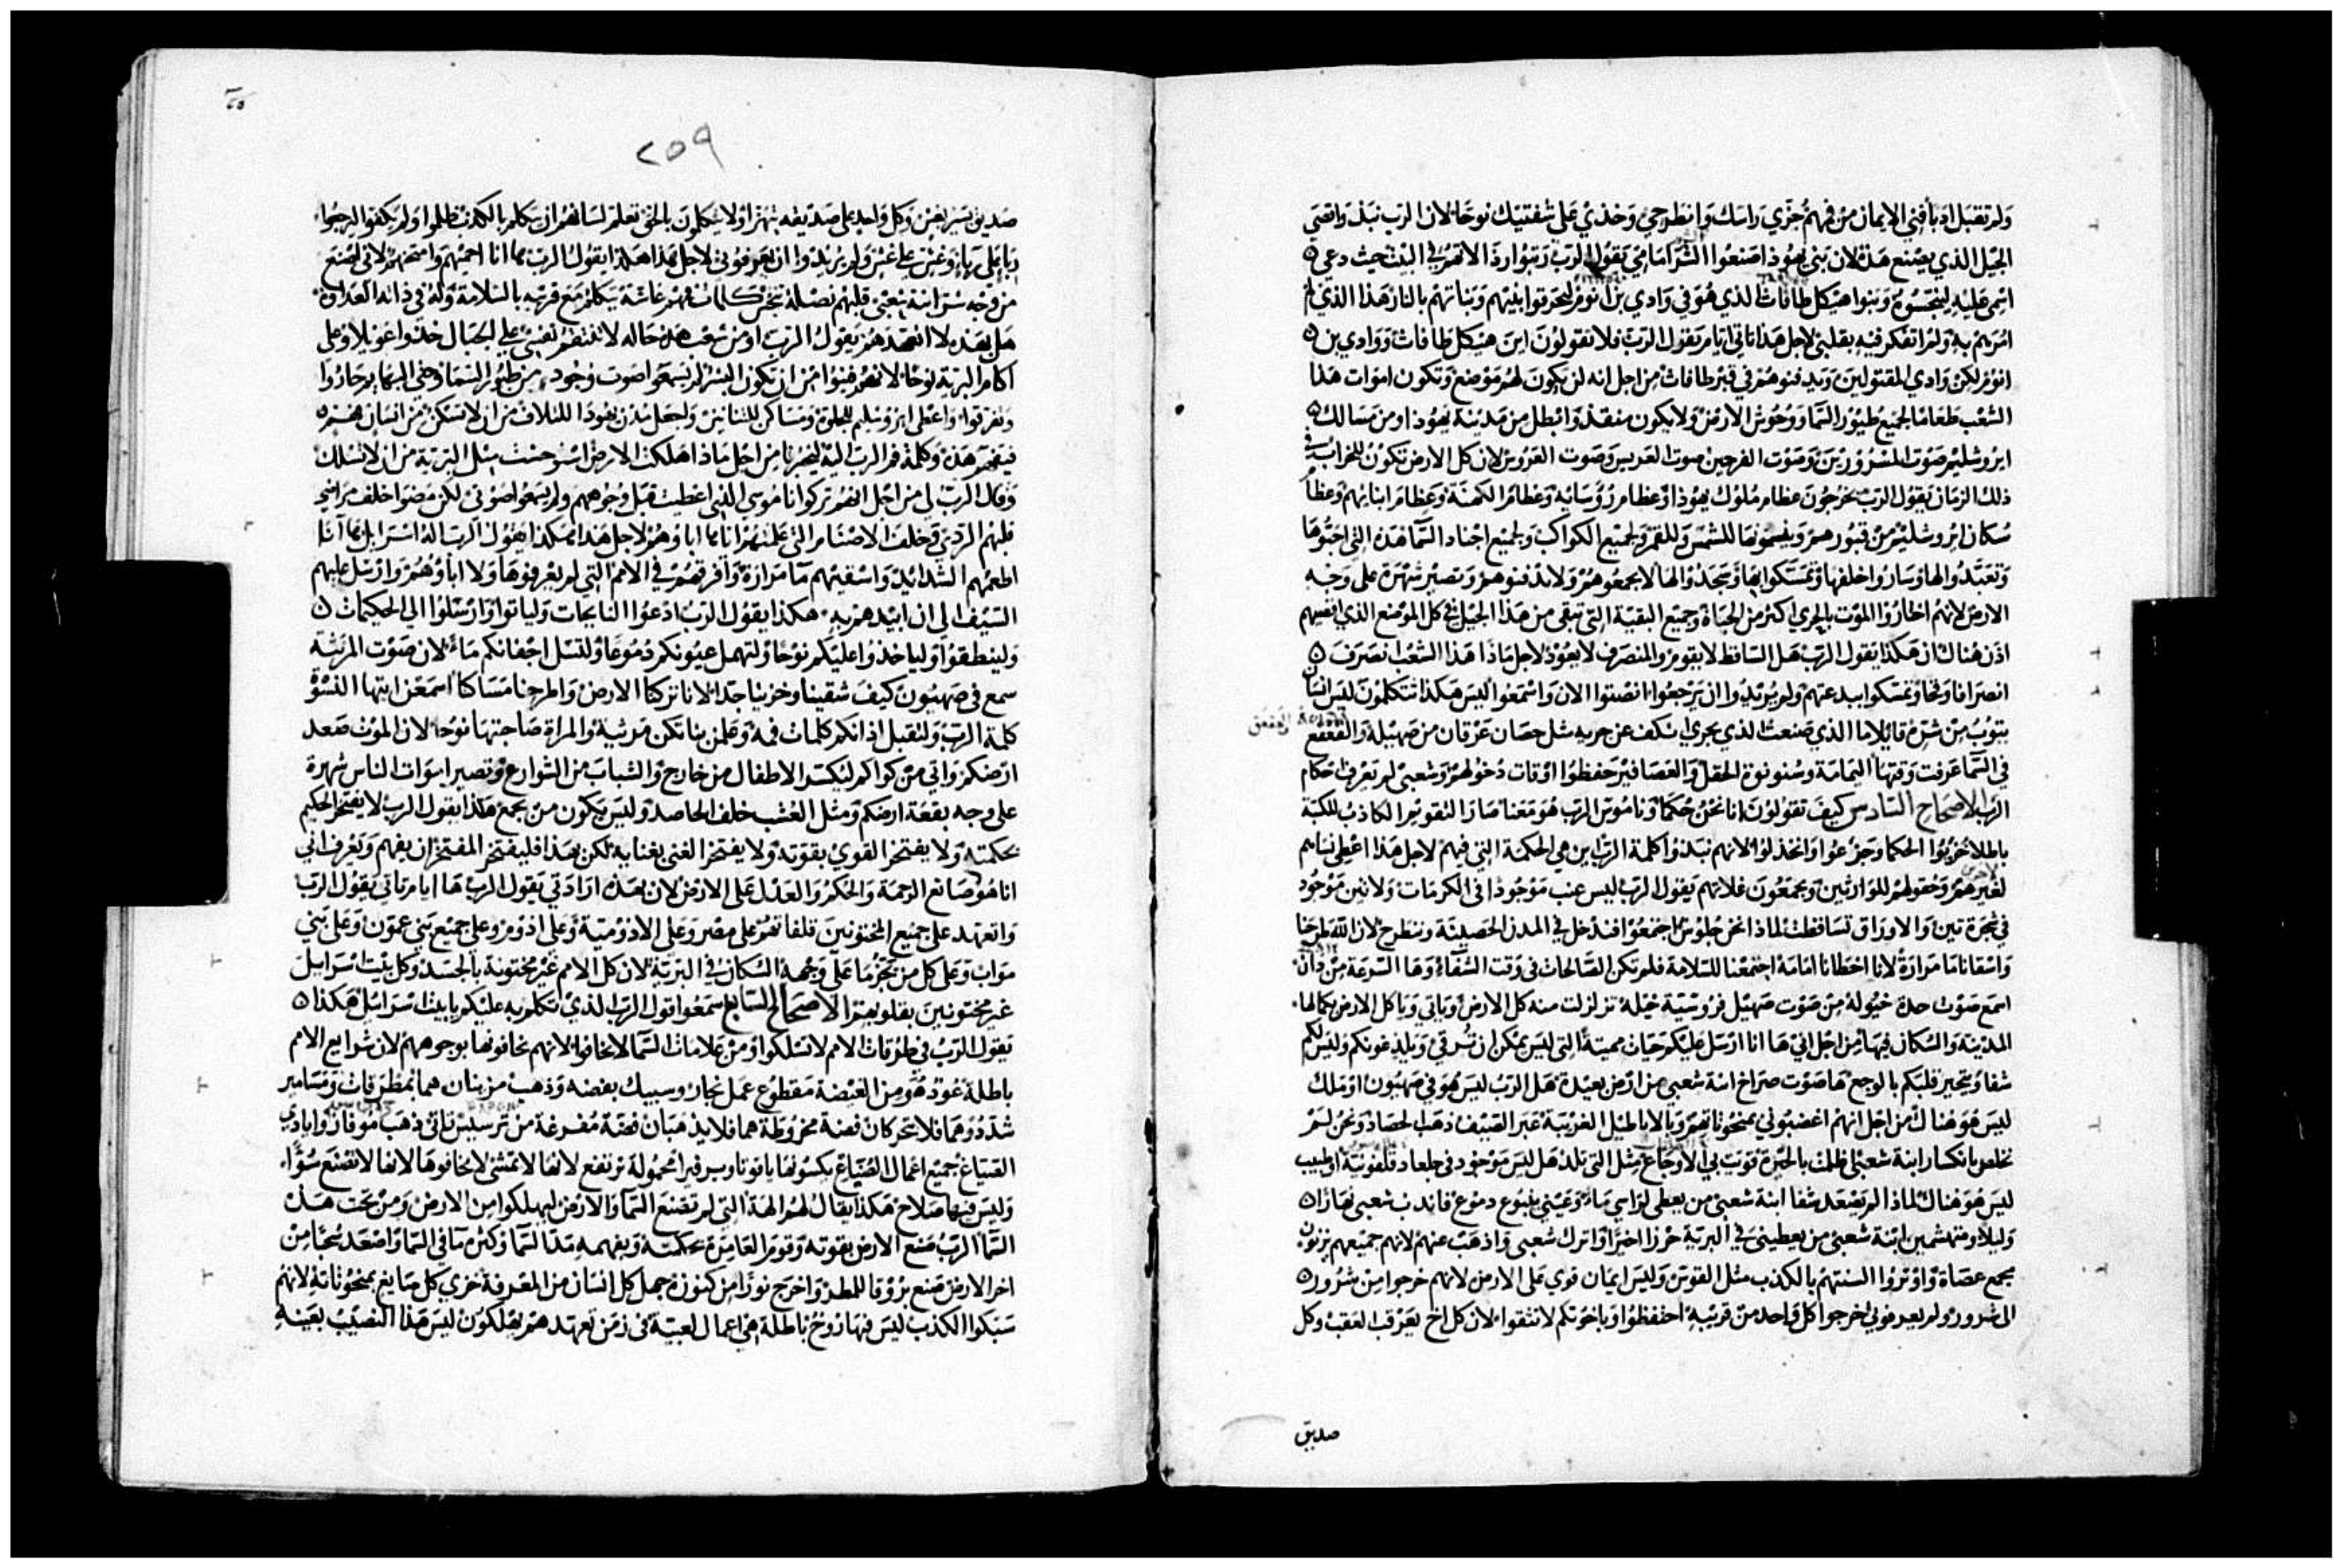 ولم تقبل ادبا فني الايمان من فمهم جزي راسك وانطرحي وخذي على شفتيك نوحا لان الرب نبذ واقصى
الجيل الذي يصنع هذه لان بني يهوذا صنعوا الشر امامي يقول الرب رتبوا رذالاتهم في البيت حيث دعي
اسمي عليه لينجسوه وبنوا هيكل طافاث الذي هو في وادي بن انوم ليحرقوا بنيهم وبناتهم بالنار هذا الذي لم
امرهم به ولم اتفكر فيه بقلبي لاجل هذا تاتي ايام يقول الرب فلا تقولون اين هيكل طافاث ووادي بن
انوم لكن وادي المقتولين ويدفنوهم في قبر طافاث من اجل انه لن يكون لهم موضع وتكون اموات هذا
الشعب طعاما لجميع طيور السما ووحوش الارض ولا يكون منقذ وابطل من مدينة يهوذا ومن مسالك
ايروشليم صوت المسرورين وصوت الفرحين صوت العريس وصوت العروس لان كل الارض تكون للخراب في
ذلك الزمان يقول الرب يخرجون عظام ملوك يهوذا وعظام رؤسايه وعظام الكهنة وعظام انبيايهم وعظام
سكان ايروشليم من قبورهم ويضعونها للشمس وللقمر ولجميع الكواكب ولجميع اجناد السما هذه التي احبوها
وتعبدوا لها وساروا خلفها وتمسكوا بها وسجدوا لها لا يجمعوهم ولا يدفنوهم وتصير شهرة على وجه
الارض لانهم اختاروا الموت بالحري اكثر من الحياة وجميع البقية التي تبقى من هذا الجيل في كل الموضع الذي اقصيهم
اذن هناك ان هكذا يقول الرب هل الساقط لا يقوم والمنصرف لا يعود لاجل ماذا هذا الشعب انصرف
انصرافا وقحا وتمسكوا ببدعتهم ولم يريدوا ان يرجعوا انصتوا الان واسمعوا اليس هكذا تتكلمون ليس انسان
يتوب من شره قايلا ما الذي صنعت الذي يجري انكف عن جريه مثل حصان عرقان من صهيله والقعقع
في السما عرفت وقتها اليمامة وسنونوة الحقل والعصافير حفظوا اوقات دخولهم وشعبي لم يعرف احكام
الرب الاصحاح السادس كيف تقولون انا نحن حكما وناموس الرب هو معنا صار التقويم الكاذب للكتبة
باطلا خزيوا الحكما وجزعوا وانخذلوا لانهم نبذوا كلمة الرب اين هي الحكمة التي فيهم لاجل هذا اعطي نساهم
لغيرهم وحقولهم للوارثين ويجمعون غلاتهم يقول الرب ليس عنب موجودا في الكرمات ولا تين موجود
في شجرة تين والاوراق تساقطت لماذا نحن جلوس اجتمعوا فندخل في المدن الحصينة وننطرح لان الله طرحنا
واسقانا ما مرارة لانا اخطانا امامه اجتمعنا للسلامة فلم تكن الصالحات في وقت الشفاء وها السرعة من دان
اسمع صوت حدة خيوله من صوت صهيل فروسية خيله تزلزلت منه كل الارض وياتي وياكل الارض بكمالها
المدينة والسكان فيها من اجل اني ها انا ارسل عليكم حيات مميتة التي ليس يمكن ان ترقي ويلدغونكم وليس لكم
شفا ويتحير قلبكم بالوجع ها صوت صراخ ابنة شعبي من ارض بعيدة هل الرب ليس هو في صهيون او ملك
ليس هو هناك من اجل انهم اغضبوني بمنحوتاتهم وبالاباطيل الغريبة عبر الصيف ذهب الحصاد ونحن لم
نخلص بانكسار ابنة شعبي اظلمت بالحيرة قويت بي الاوجاع مثل التي تلد هل ليس موجود في جلعاد قلفونية او طبيب
ليس هو هناك لماذا لم يصعد شفا ابنة شعبي من يعطي لراسي ماء وعيني ينبوع دموع فاندب شعبي نهارا
وليلا ومتهشمين ابنة شعبي من يعطيني في البرية حرزا اخيرا واترك شعبي واذهب عنهم لانهم جميعهم يزنون
مجمع عصاة واوتروا السنتهم بالكذب مثل القوس وليس ايمان قوي على الارض لانهم خرجوا من شرور
الى شرور ولم يعرفوني اخرجوا كل واحد من قريبه احتفظوا وباخوتكم لا تثقوا لان كل اخ يعرقب العقب وكل
صديق
٢٥٩
صديق يسير بغش وكل واحد على صديقه يتهزا ولا يتكلمون بالحق تعلم لسانهم ان يتكلم بالكذب ظلموا ولم يكفوا ليرجعوا
ربا على رباء وغش على غش ولم يريدوا ان يعرفوني لاجل هذا هكذا يقول الرب ها انا احميهم وامتحنهم لاني اصنع
من وجه شر ابنة شعبي قلبهم نصلة تجرح كلمات فمهم غاشة يتكلم مع قريبه بالسلامة وله في ذاته العداوة
هل بهذه لا اتعهدهم يقول الرب او من شعب هذه حاله لا تنتقم نفسي على الجبال خذوا عويلا وعلى
اكام البرية نوحا لانهم فنوا من ان يكون البشر لم يسمعوا صوت وجود من طيور السما وحتى البهايم حاروا
وتفرقوا واعطى ايروشليم للجلوة ومساكن للتنانين ولجعل مدن يهوذا للتلاف من ان لا تسكن من انسان فهيم
فيفهم هذه وكلمة فم الرب اليه ليخبرنا من اجل ماذا هلكت الارض استوحشت مثل البرية من ان لا تسلك
وقال الرب لي من اجل انهم تركوا ناموسي الذي اعطيت قبل وجوههم ولم يسمعوا صوتي لكن مضوا خلف مراضي
قلبهم الردي وخلف الاصنام التي علمتهم اياها اباوهم لاجل هذا هكذا يقول الرب اله اسرايل ها انا
اطعمهم الشدايد واسقيهم ما مرارة وافرقهم في الامم التي لم يعرفوها ولا اباؤهم وارسل عليهم
السيف الى ان ابيدهم به هكذا يقول الرب ادعوا النايحات ولياتوا وارسلوا الى الحكيمات
ولينطقوا ولياخذوا عليكم نوحا ولتهمل عيونكم دموعا ولتسل اجفانكم ماء لان صوت المرثية
سمع في صهيون كيف شقينا وخزينا جدا لانا تركنا الارض واطرحنا مساكنا اسمعن ايتها النسوة
كلمة الرب ولتقبل اذانكم كلمات فمه وعلمن بناتكن مرثية والمراة صاحبتها نوحا لان الموت صعد
ارضكم واتى من كواكم ليكسر الاطفال من خارج والشباب من الشوارع وتصير اموات الناس شهرة
على وجه بقعة ارضكم ومثل العشب خلف الحاصد وليس يكون من يجمع هكذا يقول الرب لا يفتخر الحكيم
بحكمته ولا يفتخر القوي بقوته ولا يفتخر الغني بغنايه لكن بهذا فليفتخر المفتخر ان يفهم ويعرف اني
انا هو صانع الرحمة والحكم والعدل على الارض لان بهذه ارادتي يقول الرب ها ايام تاتي يقول الرب
واتعهد على جميع المختونين قلفاتهم على مصر وعلى الادومية وعلى اذوم وعلى جميع بني عمون وعلى بني
مواب وعلى كل من يحتزم ما على وجهه السكان في البرية لان كل الامم غير مختونة بالجسد وكل بيت اسرايل
غير مختونين بقلوبهم الاصحاح السابع سمعوا قول الرب الذي تكلم به عليكم يا بيت اسرايل هكذا
يقول الرب في طرقات الامم لا تسلكوا ومن علامات السما لا تخافوا لانهم يخافونها بوجوههم لان شرايع الامم
باطلة عود هو من الغيضة مقطوع عمل نجار وسبيك بفضة وذهب مزينان هما بمطرقات ومسامير
شددوهما فلا يتحركان فضة مخروطة هما فلا يذهبان فضة مفرغة من ترسيس تاتي ذهب موفاز وايادي
الصياغ جميع اعمال الصياغ يكسونها ياقوتا وبرفيرا محمولة ترتفع لانها لا تمشي لا تخافوها لانها لا تصنع سوءا
وليس فيها صلاح هكذا يقال لهم الهة التي لم تصنع السما والارض ليهلكوا من الارض ومن تحت هذه
السما الرب صنع الارض بقوته وقوم العامرة بحكمته وبفهمه مد السما وكثرة ما في السما واصعد سحبا من
اخر الارض صنع بروقا للمطر واخرج نورا من كنوزه جهل كل انسان من المعرفة خزي كل صايغ بمنحوتاته لانهم
سبكوا الكذب ليس فيها روح باطلة هي اعمال لعبية في زمن تعهدهم يهلكون ليس هذا النصيب بعينه